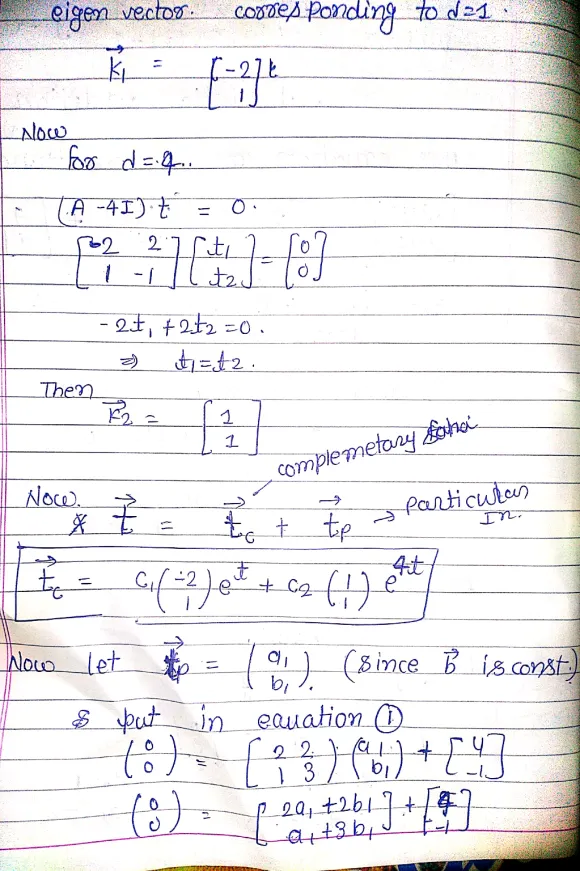 eigen vector. corresponding to d=1.
k⃗₁ = [-2 1] t
Now
for d = 4..
(A - 4I) t = 0.
[-2 2 1 -1] [t₁ t₂] = [0 0]
-2t₁ + 2t₂ = 0.
⇒ t₁ = t₂.
Then
k⃗₂ = [1 1]
complemetary
Now. t⃗ = t⃗c + t⃗p → Particular In.
t⃗c = c₁(-2 1) e^t + c₂ (1 1) e^4t
Now let t⃗p = (a₁ b₁). (since b⃗ is const.)
& put in eauation ①
(0 0) = [2 2 1 3) (a₁ b₁) + [4 -1]
(0 0) = [2a₁ + 2b₁ a₁ + 3b₁] + [4 -1]